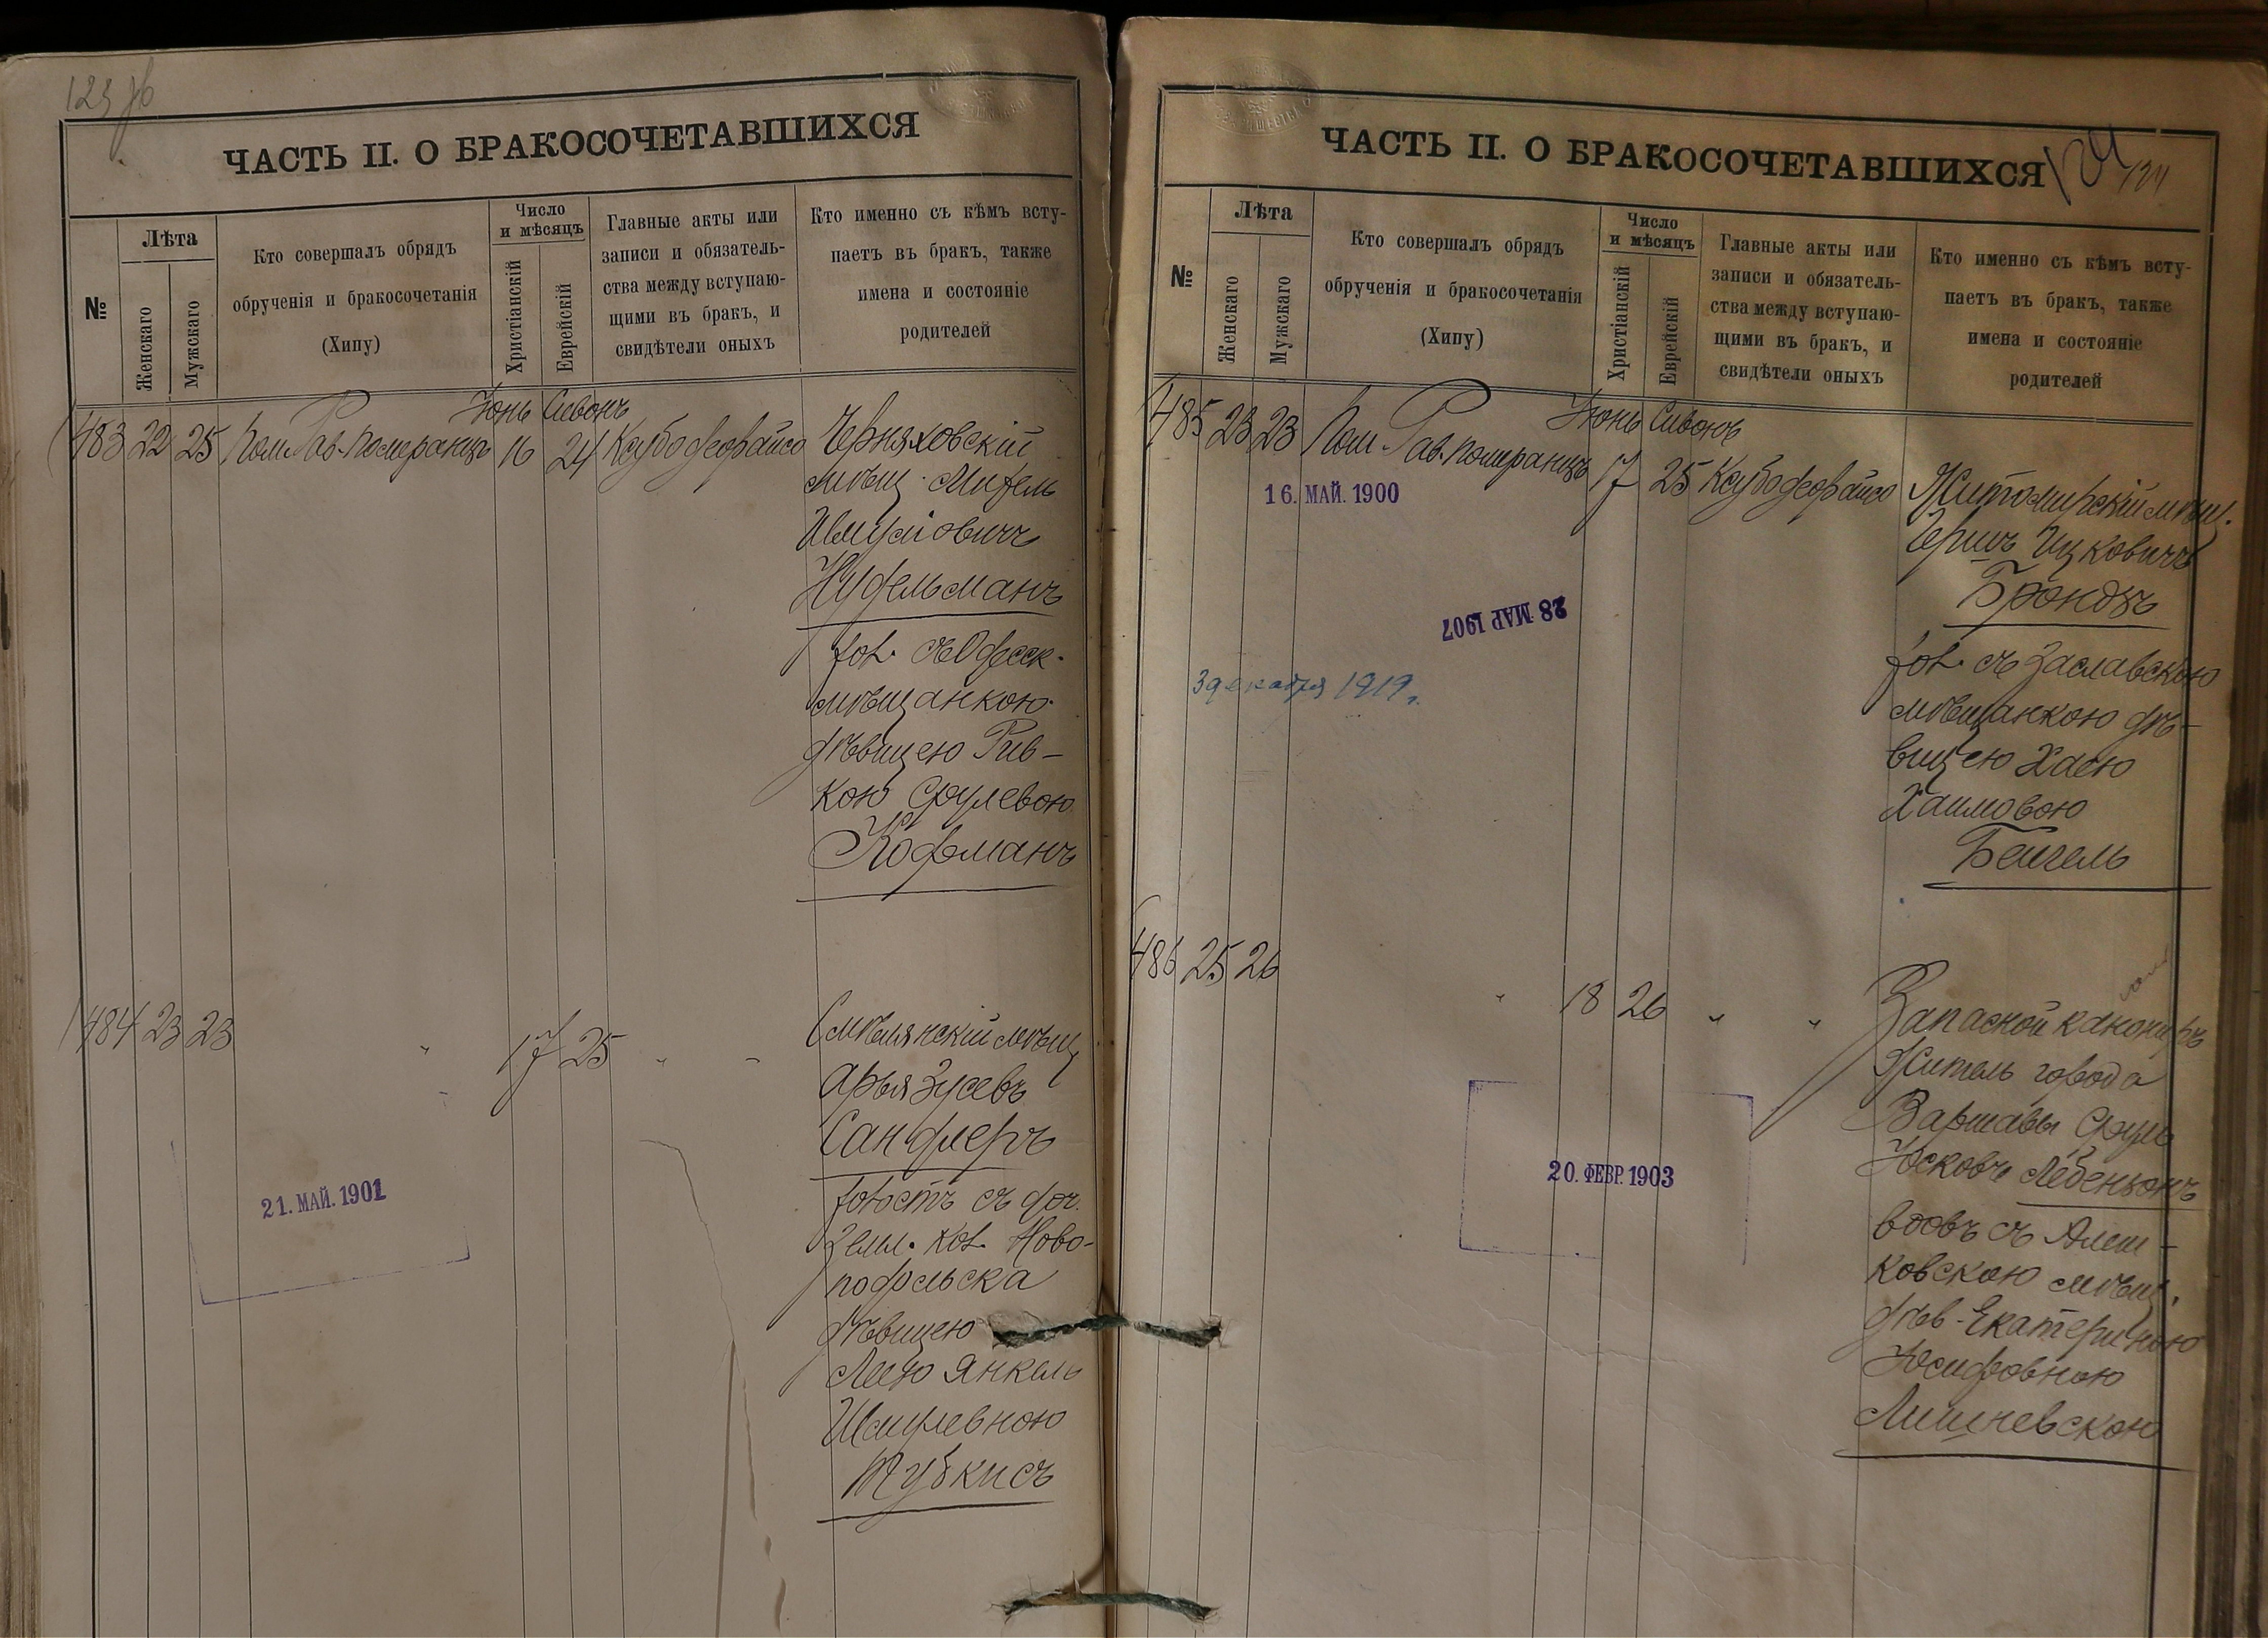 123 об
ЧАСТЬ II. О БРАКОСОЧЕТАВШИХСЯ
№
Лѣта
Женскаго
Мужскаго
Кто совершалъ обрядъ
обрученія и бракосочетанія
(Хипу)
Число
и мѣсяцъ
Христіанскій
Еврейскій
Главные акты или
записи и обязатель-
ства между вступаю-
щими въ бракъ, и
свидѣтели оныхъ
Кто именно съ кѣмъ всту-
паетъ въ бракъ, также
имена и состояніе
родителей
Іюнь Сивонъ
483 22 25 Пом. Рав. Померанцъ 16 24 Ксубо
Черняховскій
мѣщ.
Нудельманъ
хол. съ Одесск.
мѣщанкою
дѣвицею Рив-
кою Срулевою
Кофманъ
484 23 23 " 17 25 " "
Смѣлянскій мѣщ
Арья Зусевъ
Сандлеръ
холостъ съ доч.
Земл. кол. Ново-
подольска
дѣвицею
Янкель
Шмулевною
Тубкисъ
21. МАЙ. 1901
ЧАСТЬ II. О БРАКОСОЧЕТАВШИХСЯ
124
124
№
Лѣта
Женскаго
Мужскаго
Кто совершалъ обрядъ
обрученія и бракосочетанія
(Хипу)
Число
и мѣсяцъ
Христіанскій
Еврейскій
Главные акты или
записи и обязатель-
ства между вступаю-
щими въ бракъ, и
свидѣтели оныхъ
Кто именно съ кѣмъ всту-
паетъ въ бракъ, также
имена и состояніе
родителей
Іюнь Сивонъ
485 23 23 Пом. Рав. Померанцъ 17 25 Ксубо
16. МАЙ. 1900
28 МАР 1907
3 декабря 1919 г.
Житомирскій мѣщ.
Гершъ Ицковичъ
Брондзъ
хол. съ Заславскою
мѣщанкою дѣ-
вицею Хаею
Хаимовою
Бейгель
486 25 26 " 18 26 " "
Запасной канониръ
Житель города
Варшавы Сруль
Юсковъ Лебензонъ
вдовъ съ Алеш-
ковскою мѣщ.
дѣв. Екатериною
Юсифовною
Лишневскою
20. ФЕВР. 1903